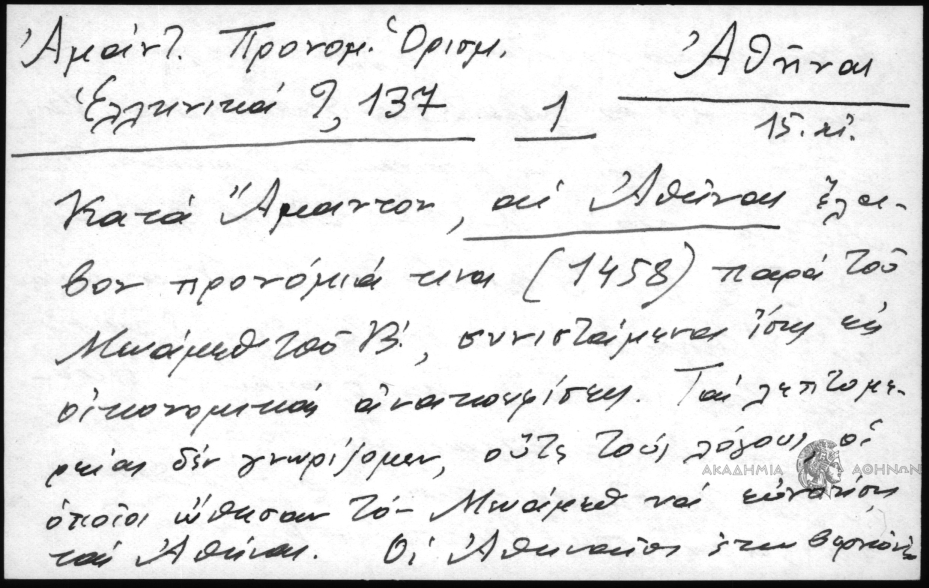 Ἀμάντ. Προνομ. Ὁρισμ.
Ἀθῆναι
Ἑλληνικά 9, 137
1
15. αἰ.
Κατά Ἄμαντον, αἱ Ἀθῆναι ἔλα-
βον προνόμιά τινα (1458) παρά τοῦ
Μωάμεθ τοῦ Β΄., συνιστάμενα ἴσως εἰς
οἰκονομικάς ἀνακουφίσεις. Τάς λεπτομε-
ρείας δέν γνωρίζομεν, οὔτε τούς λόγους οἱ
ΑΚΑΔΗΜΙΑ ΑΘΗΝΩΝ
ὁποῖοι ὤθησαν τόν Μωάμεθ νά εὐνοήση
τάς Ἀθήνας. Οἱ Ἀθηναῖοι